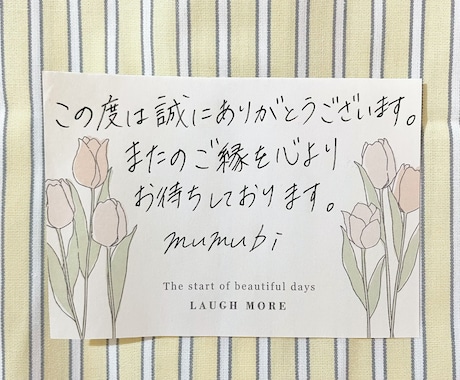 この度は誠にありがとうございます。
またのご縁を心より
お待ちしております。
mumubi
The start of beautiful days
LAUGH MORE